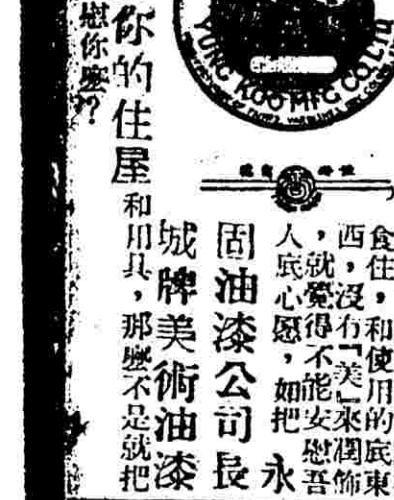 YUNG KOO MFG CO LTD
食住，和使用的底東
西，沒有『美』來潤飾
，就覺得不能安慰吾
人底心愿，如把永
固油漆公司長
城牌美術油漆
你的住屋和用具，那麼不是就把
慰你麼？？